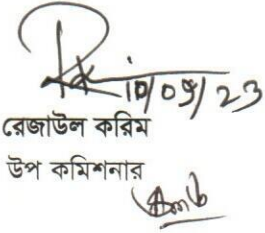 10/09/23
রেজাউল করিম
উপ কমিশনার